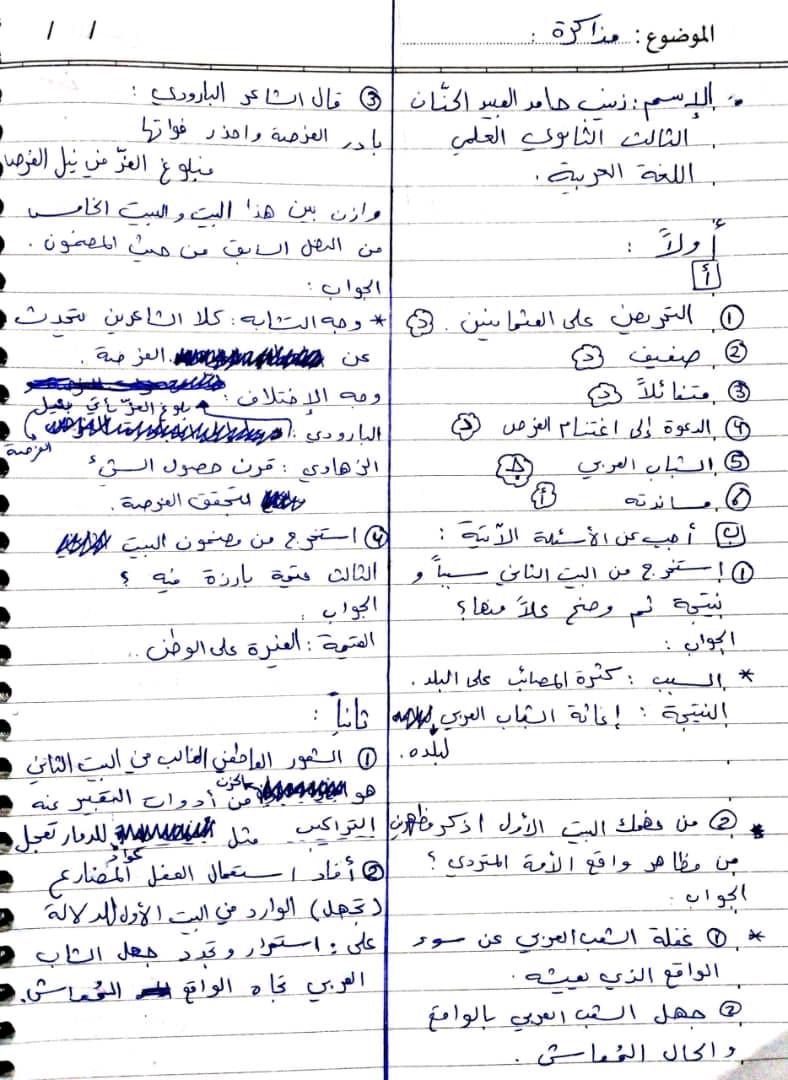 الموضوع: مذاكرة :
/ /
الإسم: زينب حامد العبيد الحنّان
الثالث الثانوي العلمي
اللغة العربية.
أولاً :
أ
① التحريض على العثمانيين. د
② ضعيف د
③ متفائلاً د
④ الدعوة إلى اغتنام الفرص د
⑤ الشباب العربي
⑥ مساندته أ
ب أجب عن الأسئلة الآتية :
① استخرج من البيت الثاني سبباً و
نتيجة ثم وضح كلاً منها؟
الجواب :
* السبب : كثرة المصائب على البلد.
النتيجة : إغاثة الشباب العربي
لبلده.
* ② من فهمك البيت الأول اذكر مظهرين
من مظاهر واقع الأمة المتردي؟
الجواب :
* ① غفلة الشعب العربي عن سوء
الواقع الذي يعيشه.
② جهل الشعب العربي بالواقع
والحال المُعاش.
③ قال الشاعر البارودي :
بادر الفرصة واحذر فواتها
فبلوغ العزّ في نيل الفرص
وازن بين هذا البيت والبيت الخامس
من النص السابق من حيث المضمون.
الجواب :
* وجه التشابه: كلا الشاعرين يتحدث
عن الفرصة.
وجه الإختلاف :
البارودي : بلوغ العزّ يأتي بنيل
الفرصة
الزهاوي : قرن حصول الشيء
لتحقق الفرصة.
④ استخرج من مضمون البيت
الثالث قيمة بارزة فيه ؟
الجواب :
القيمة : الغيرة على الوطن..
ثانياً :
① الشعور العاطفي الغالب في البيت الثاني
هو الحزن من أدوات التعبير عنه
التراكيب مثل للدمار تعجل
② أفاد استعمال الفعل المضارع
(تجهل) الوارد في البيت الأول للدلالة
على : استمرار وتجدد جهل الشباب
العربي تجاه الواقع المُعاش.